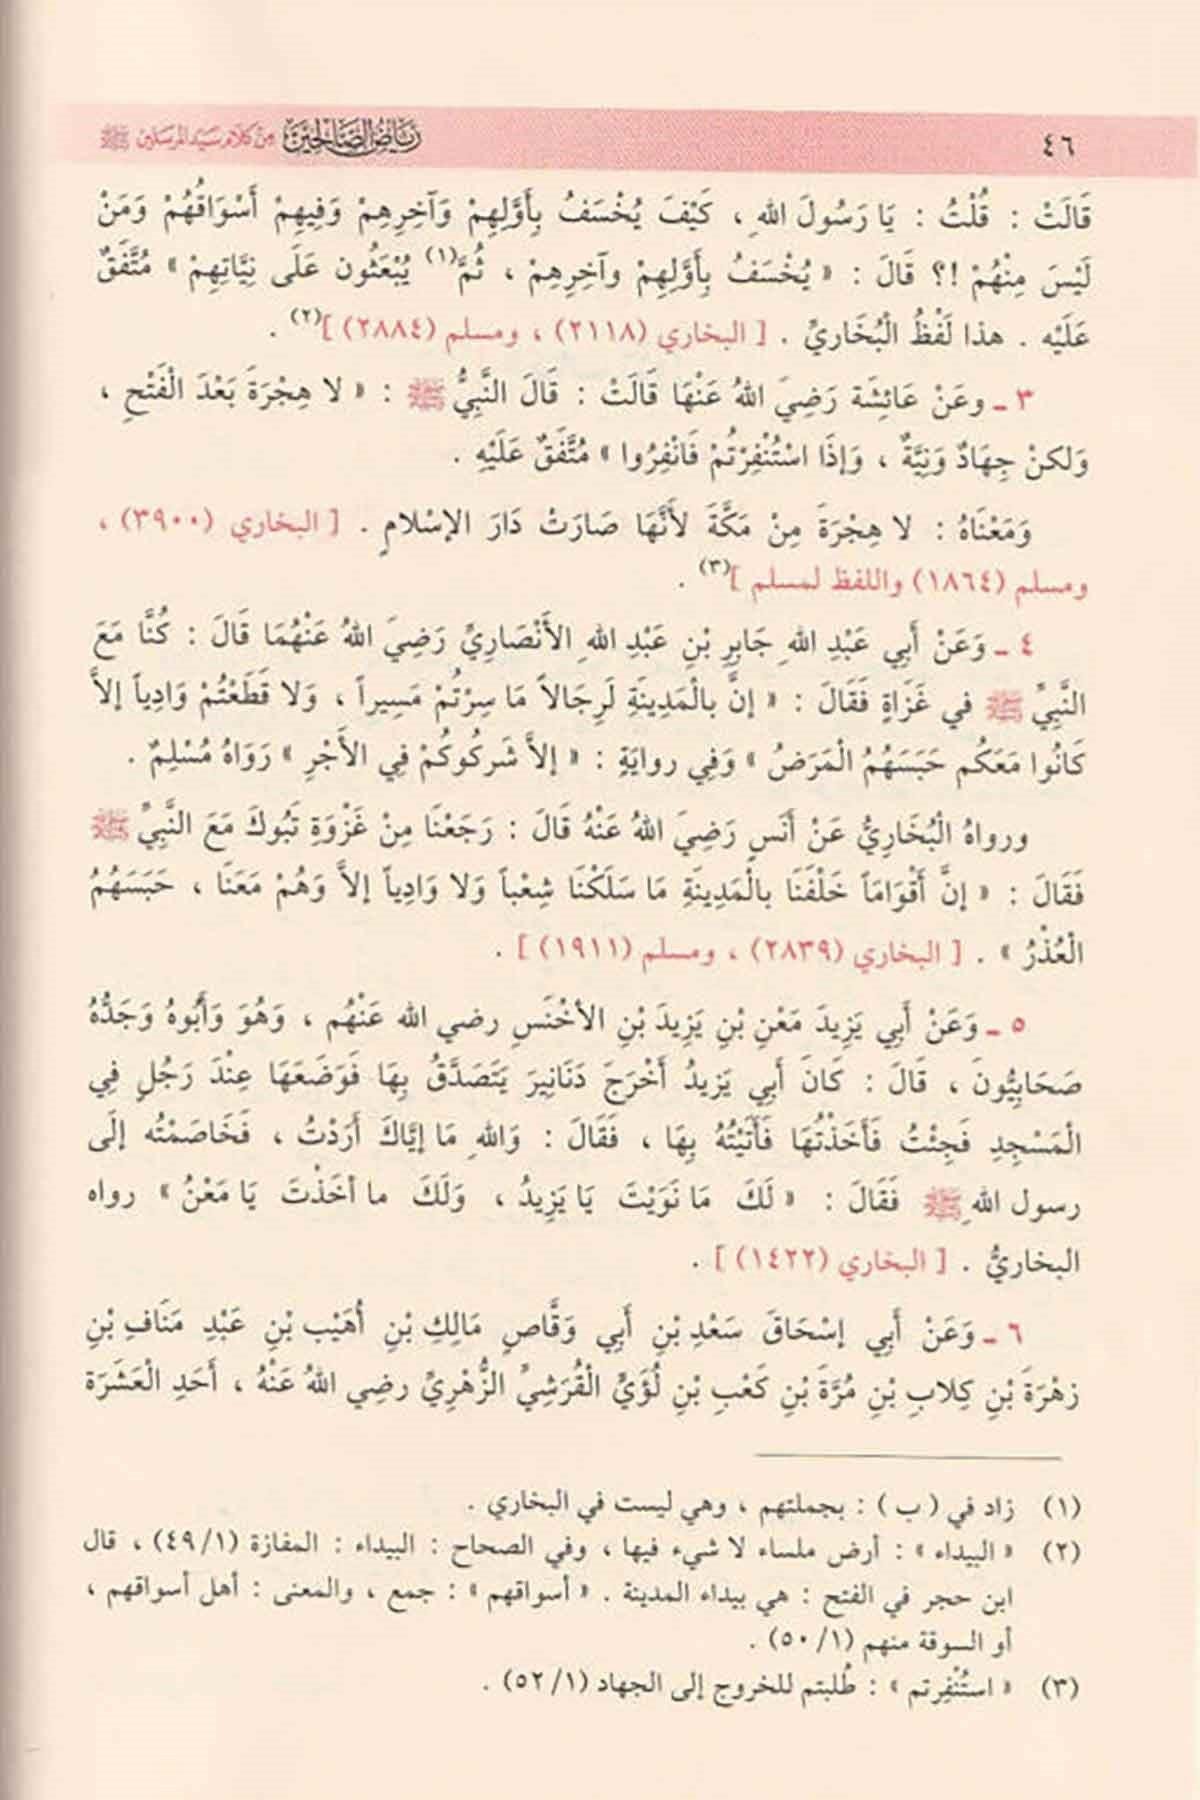 ٤٦ رياض الصالحين من كلام سيد المرسلين ﷺ
قَالَتْ : قُلْتُ : يَا رَسُولَ اللهِ ، كَيْفَ يُخْسَفُ بِأَوَّلِهِمْ وَآخِرِهِمْ وَفِيهِمْ أَسْوَاقُهُمْ وَمَنْ
لَيْسَ مِنْهُمْ !؟ قَالَ : « يُخْسَفُ بِأَوَّلِهِمْ وآخِرِهِمْ ، ثُمَّ(١) يُبْعَثُون عَلَى نِيَّاتِهِمْ » مُتَّفَقٌ
عَلَيْه . هذا لَفْظُ الْبُخَارِيِّ . [ البخاري (٢١١٨) ، ومسلم (٢٨٨٤) ](٢) .
٣ ـ وعَنْ عَائِشَة رَضِيَ اللهُ عَنْهَا قَالَتْ : قَالَ النَّبِيُّ ﷺ : « لا هِجْرَةَ بَعْدَ الْفَتْحِ ،
وَلكنْ جِهَادٌ وَنِيَّةٌ ، وَإذَا اسْتُنْفِرْتُمْ فَانْفِرُوا » مُتَّفَقٌ عَلَيْهِ .
وَمَعْنَاهُ : لا هِجْرَةَ مِنْ مَكَّةَ لأَنَّهَا صَارَتْ دَارَ الإسْلامِ . [ البخاري (٣٩٠٠) ،
ومسلم (١٨٦٤) واللفظ لمسلم ](٣) .
٤ ـ وَعَنْ أَبِي عَبْدِ اللهِ جَابِرِ بْنِ عَبْدِ اللهِ الأَنْصَارِيِّ رَضِيَ اللهُ عَنْهُمَا قَالَ : كُنَّا مَعَ
النَّبِيِّ ﷺ في غَزَاةٍ فَقَالَ : « إنَّ بالْمَدِينَةِ لَرِجَالاً مَا سِرْتُمْ مَسِيراً ، وَلا قَطَعْتُمْ وَادِياً إلاَّ
كَانُوا مَعَكُم حَبَسَهُمُ الْمَرَضُ » وَفِي روايَةٍ : « إلاَّ شَركُوكُمْ فِي الأَجْرِ » رَوَاهُ مُسْلِمٌ .
ورواهُ الْبُخَارِيُّ عَنْ أَنَسٍ رَضِيَ اللهُ عَنْهُ قَالَ : رَجَعْنَا مِنْ غَزْوَةِ تَبُوكَ مَعَ النَّبِيِّ ﷺ
فَقَالَ : « إنَّ أَقْوَامَاً خَلْفَنَا بالْمَدِينَةِ مَا سَلَكْنَا شِعْباً وَلا وَادِياً إلاَّ وَهُمْ مَعَنَا ، حَبَسَهُمُ
الْعُذْرُ » . [ البخاري (٢٨٣٩) ، ومسلم (١٩١١) ] .
٥ ـ وَعَنْ أَبِي يَزِيدَ مَعْنِ بْنِ يَزِيدَ بْنِ الأخْنَسِ رضي الله عَنْهُم ، وَهُوَ وَأَبُوهُ وَجَدُّهُ
صَحَابِيُّونَ ، قَالَ : كَانَ أَبِي يَزِيدُ أَخْرَجَ دَنَانِيرَ يَتَصَدَّقُ بِهَا فَوَضَعَهَا عِنْدَ رَجُلٍ فِي
الْمَسْجِدِ فَجِئْتُ فَأَخَذْتُهَا فَأَتَيْتُهُ بِهَا ، فَقَالَ : وَاللهِ مَا إيَّاكَ أَرَدْتُ ، فَخَاصَمْتُه إلَى
رسول اللهِ ﷺ فَقَالَ : « لَكَ مَا نَوَيْتَ يَا يَزِيدُ ، وَلَكَ ما أخَذْتَ يَا مَعْنُ » رواه
البخاريُّ . [ البخاري (١٤٢٢) ] .
٦ ـ وَعَنْ أَبِي إسْحَاقَ سَعْدِ بْنِ أَبِي وَقَّاصٍ مَالِكِ بْنِ أُهَيْب بْنِ عَبْدِ مَنَافِ بْنِ
زهْرَةَ بْنِ كِلابِ بْنِ مُرَّةَ بْنِ كَعْبِ بْنِ لُؤَيِّ الْقُرَشِيِّ الزُّهْرِيِّ رضِي اللهُ عَنْهُ ، أَحَدِ الْعَشَرَة
(١) زاد في ( ب ) : بجملتهم ، وهي ليست في البخاري .
(٢) « البيداء » : أرض ملساء لا شيء فيها ، وفي الصحاح : البيداء : المفازة (٤٩/١) ، قال
ابن حجر في الفتح : هي بيداء المدينة . « أسواقهم » : جمع ، والمعنى : أهل أسواقهم ،
أو السوقة منهم (٥٠/١) .
(٣) « استُنْفِرتم » : طُلبتم للخروج إلى الجهاد (٥٢/١) .